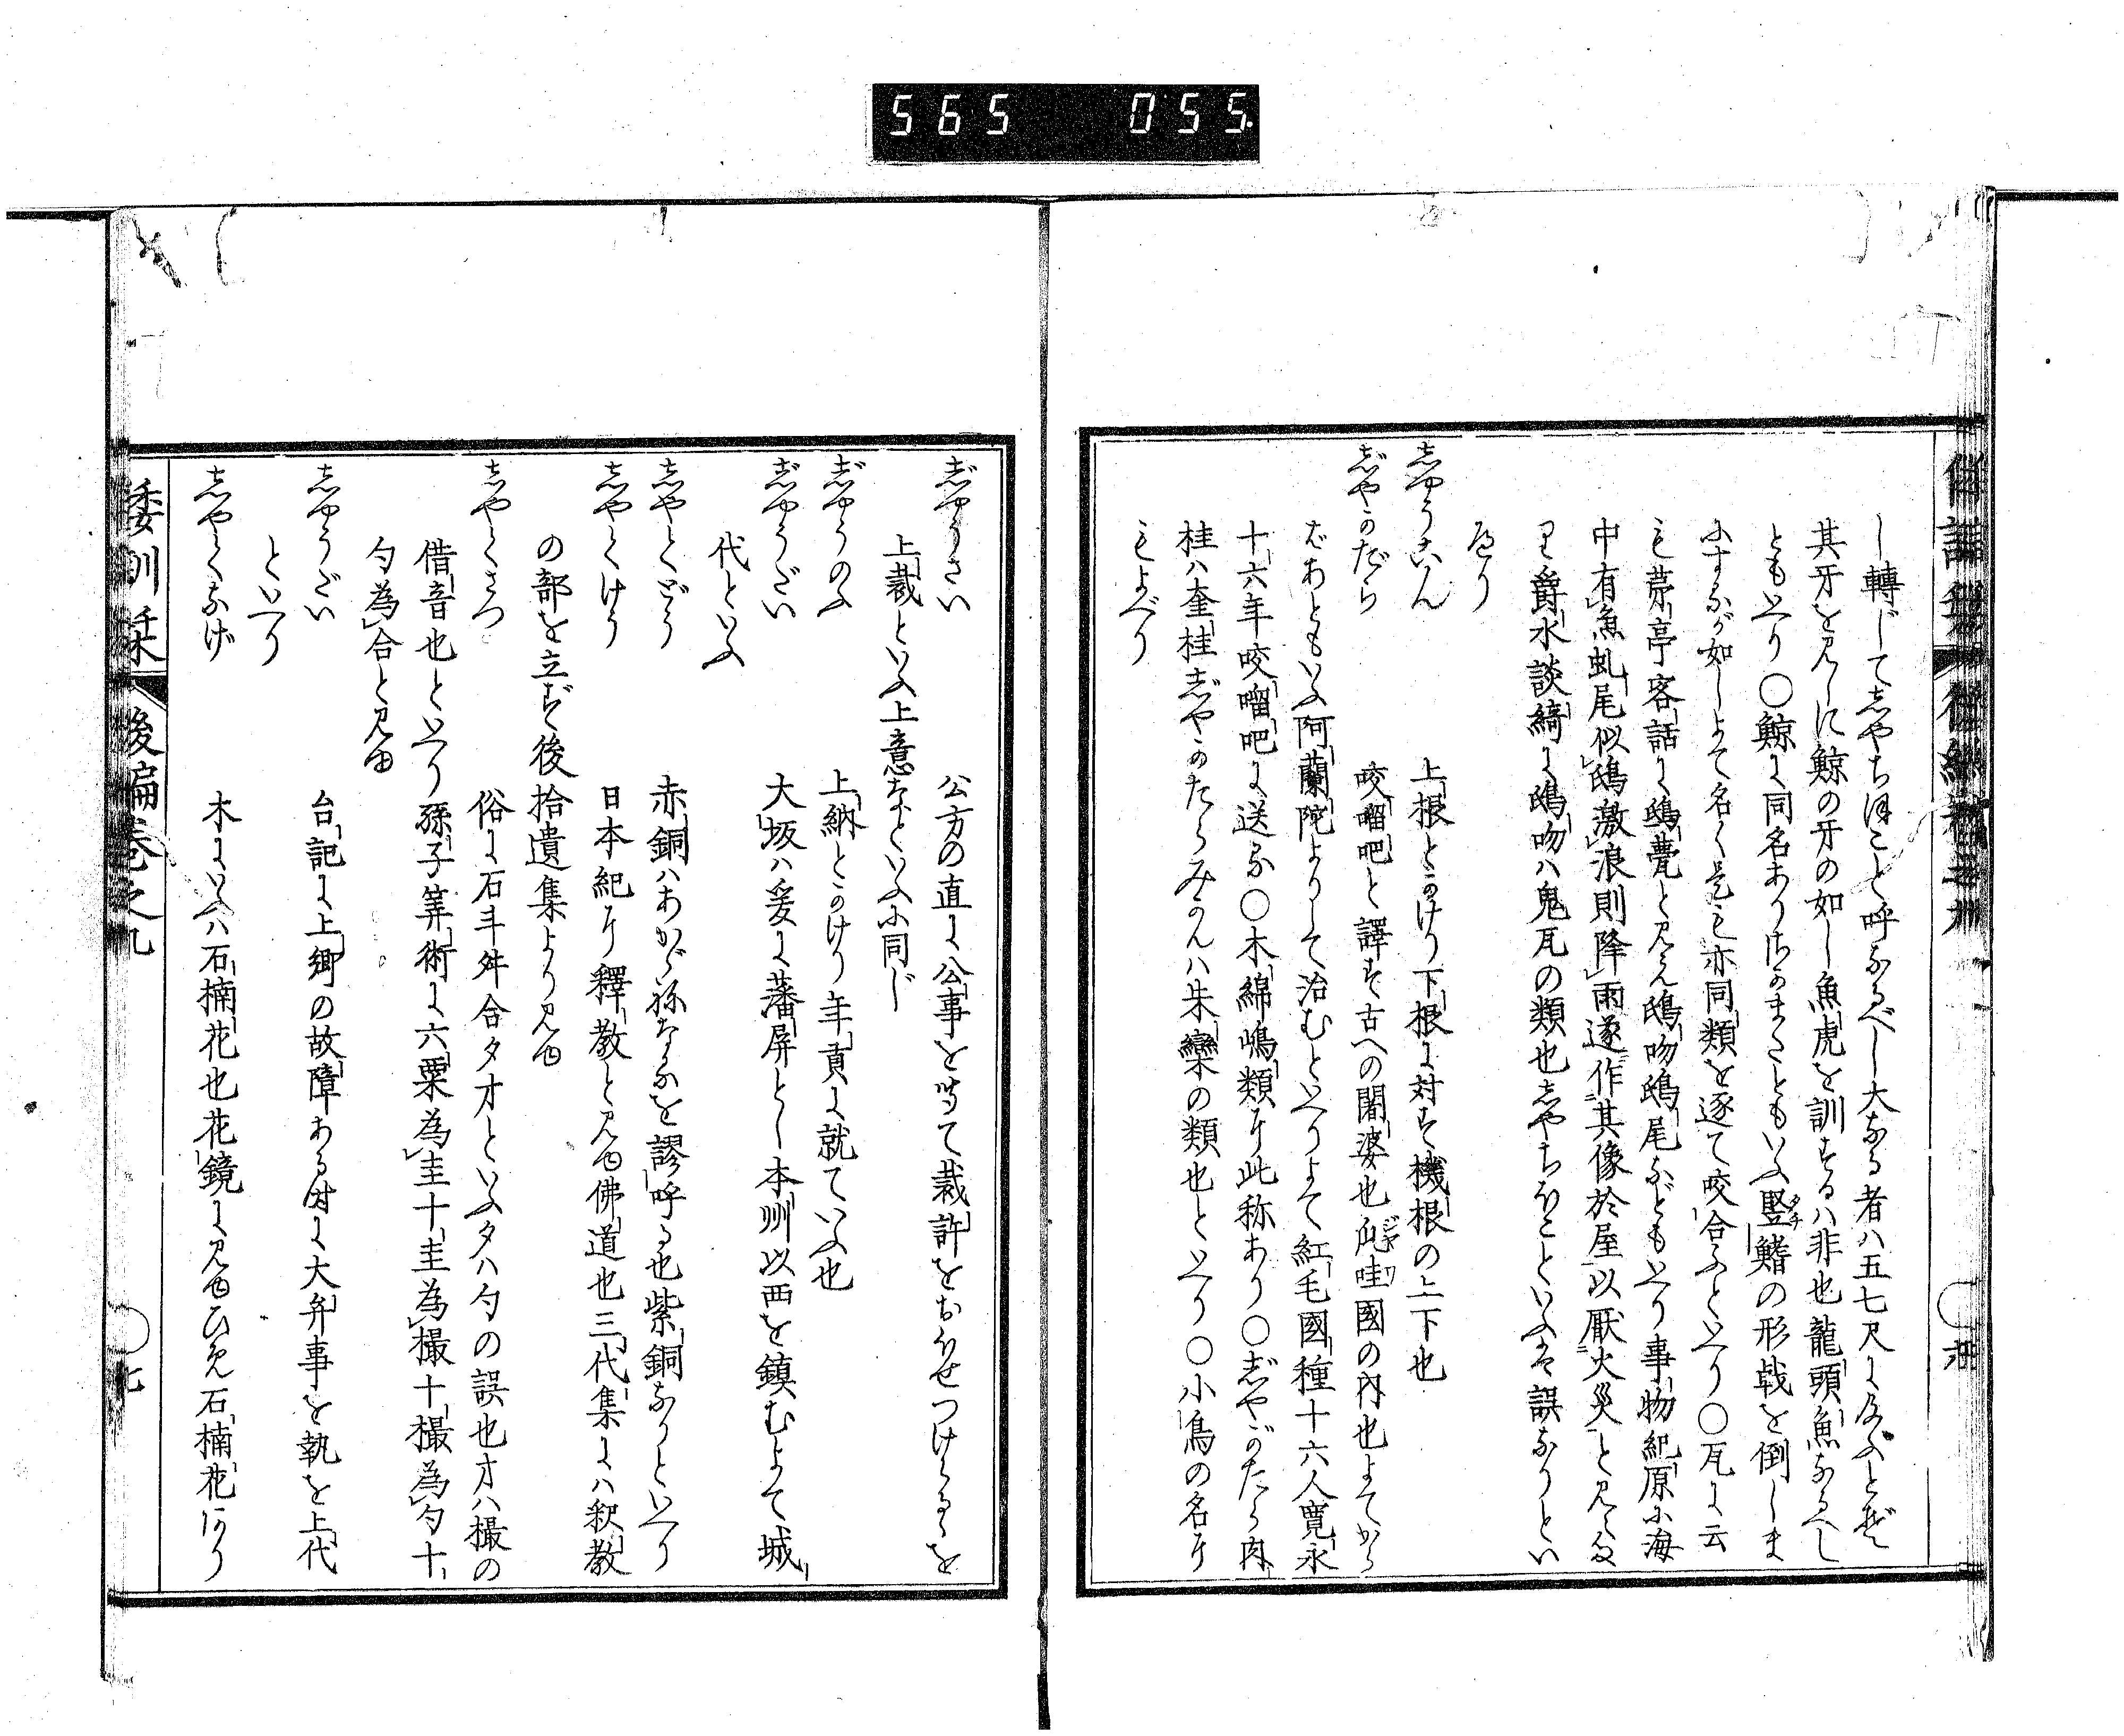 565 055.
し轉じて志やちほこと呼なるべし大なる者ハ五七尺に及ふとぞ
其牙を見しに鯨の牙の如し魚虎を訓ずるハ非也龍頭魚なるべし
ともいへり〇鯨に同名ありさかまたともいふ竪鰭の形戟を倒しま
にするが如しよて名く是も亦同類を逐て咬合ふといへり〇瓦に云
も茅亭客話に鴟甍と見え鴟吻鴟尾などもいへり事物紀原に海
中有魚虬尾似鴟激浪則降雨遂作其像於屋以厭火災と見ゆ
り爵水談綺に鴟吻ハ鬼瓦の類也志やちほこといふは誤なりとい
へり
志やうこん 上根とかけり下根に対す機根の上下也
志゛やがだら 咬𠺕吧と譯す古への闍婆也爪哇國の内也よてから
ばあともいふ阿蘭陀よりして治むといへりよて紅毛國種十六人寛永
十六年咬𠺕吧に送る〇木綿嶋類に此称あり〇志゛やがたら肉
桂ハ奎桂志゛やかたらみかんハ朱欒の類也といへり〇小鳥の名に
もよべり
志゛やうさい 公方の直に公事を聞て裁許をおほせつけらるゝを
上裁といふ上意などいふに同じ
志゛やうのふ 上納とかけり年貢に就ていふ也
志゛やうだい 大坂ハ爰に藩屏とし本州以西を鎮むよて城
代といふ
志やくどう 赤銅ハあかゞねなるを謬呼る也紫銅なりといへり
志やくけう 日本紀に釋教と見ゆ佛道也三代集にハ釈教
の部を立ず後拾遺集より見ゆ
志やくさつ 俗に石斗舛合タオといふタハ勺の誤也オハ撮の
借音也といへり孫子筭術に六粟為圭十圭為撮十撮為勺十
勺為合と見ゆ
志やうだい 台記に上卿の故障ある時に大弁事を執を上代
といへり
志やくなげ 木にいへハ石楠花也花鏡に見ゆひめ石楠花あり
倭訓栞 後編巻之九 〇七